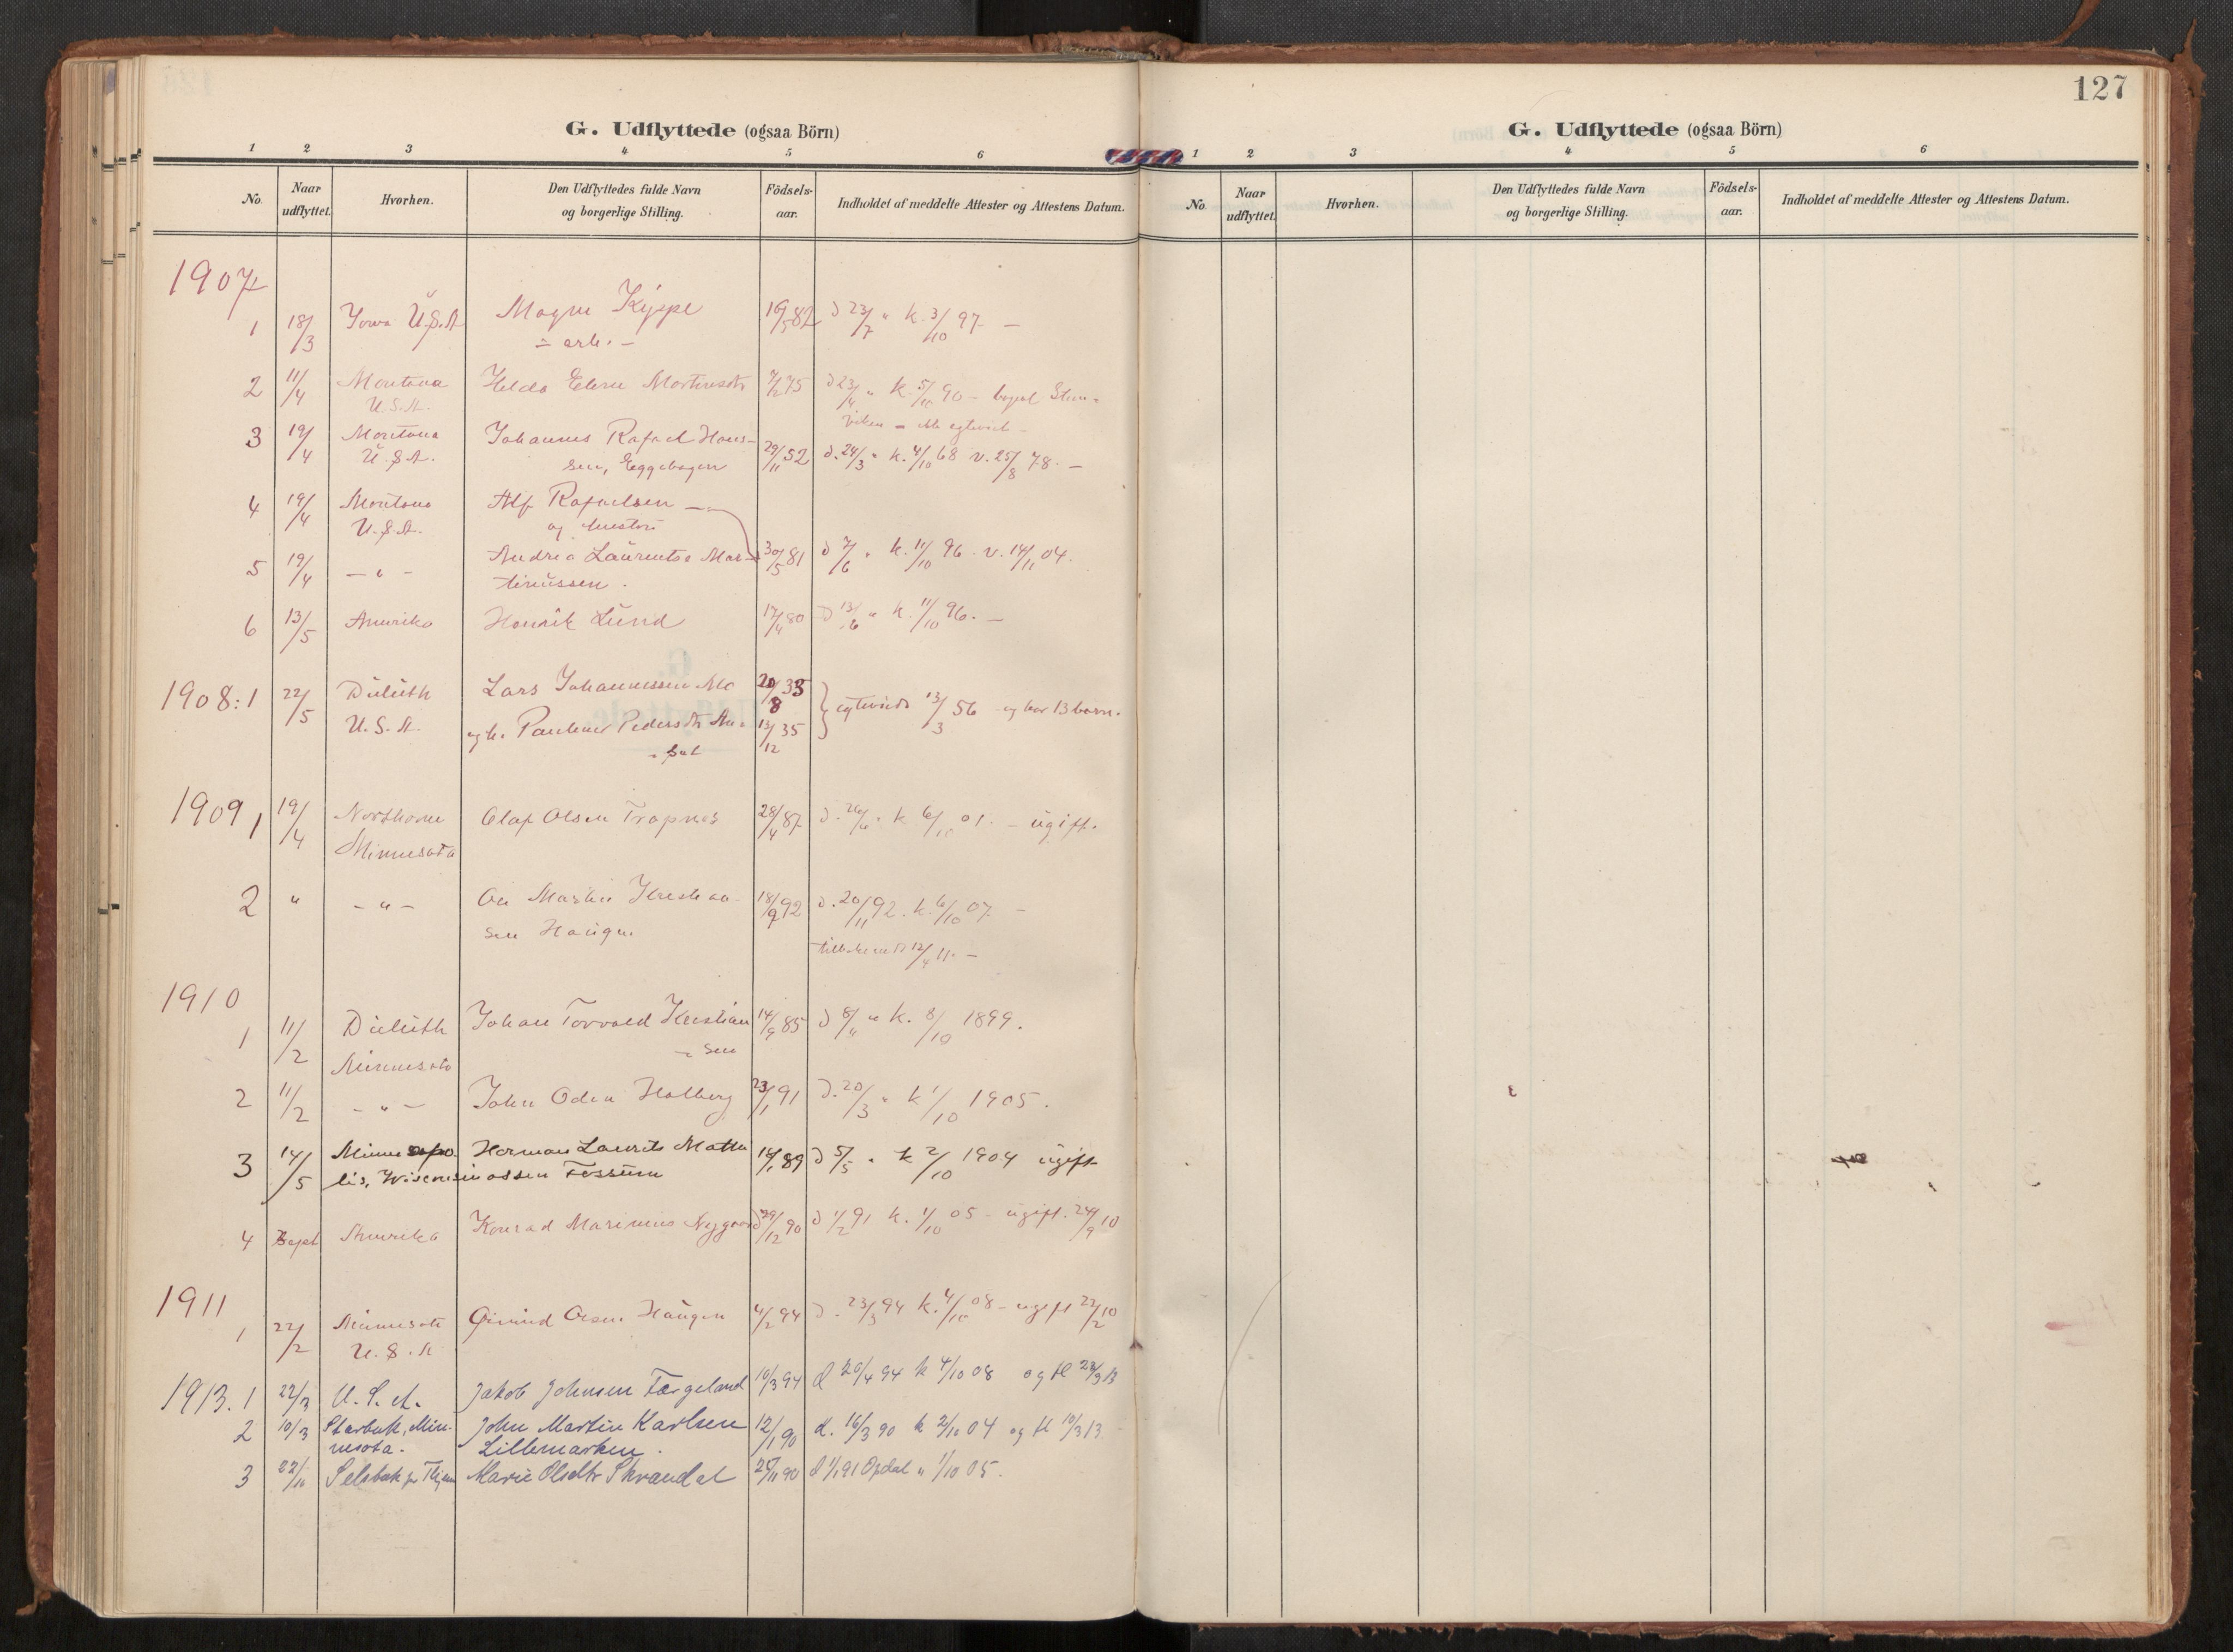 G. Udflyttede (ogsaa Börn)
1 2 3 4 5 6
No. Naar udflyttet. Hvorhen. Den Udflyttedes fulde Navn og borgerlige Stilling. Födsels-aar. Indholdet af meddelte Attester og Attestens Datum.
1907
1 18/3 Iowa U.S.A Magne Kippe 16/5 82 d 23/7 " k. 3/10 97 –
– arb. –
2 11/4 Montana 75 d 23/4 " k. 5/10 90 –
U.S.A.
3 19/4 Montana Johannes Rafael Hans-
U.S.A. sen, Eggebogen 29/11 52 d. 24/3 " k. 4/10 68 v. 25/8 78. –
4 19/4 Montana Alf Rafaelsen –
U.S.A. og hustru
5 19/4 – " – Andrea Laurentse Mar- 30/5 81 d 7/6 " k. 11/10 96 v. 14/11 04.
tinussen.
6 13/5 Amerika Henrik Lund 17/4 80 d 13/6 " k. 11/10 96. –
1908: 1 22/5 Duluth Lars Johannessen Mo 20/8 33
U.S.A. og h. Pauline Pedersdtr 13/12 35 egteviede 13/3 56 og har 13 børn.
1909 1 19/4 Northome Olaf Olsen Trapnes 28/4 87 k 6/10 01. – ugift.
Minnesota
2 " – " – Martin Kristian-
sen Haugen 18/9 92 d. 20/11 92. k. 6/10 07 –
12/4 11. –
1910
1 11/2 Duluth Johan Torvald Kristian 14/9 85 d 8/11 " k. 8/10 1899.
Minnesota – sen
2 11/2 – " – John Odin Holberg 23/1 91 d. 20/3 " k 1/10 1905.
3 14/5 Minneapo Herman Laurits Math 14/1 89 d 5/5 " k 2/10 1904 ugift
lis, Wisconsin assen Fossum
4 Sept Amerika Konrad Marinius Nygaard 29/12 90 d 1/2 91 k. 1/10 05 – ugift. 24/9 10
1911
1 22/2 Minnesota Øivind Olsen Haugen 4/2 94 d. 23/3 94 k. 4/10 08 – ugift 22/2 10
U.S.A
1913. 1 22/3 U.S.A. Jakob Johnsen Fargeland 10/3 94 d 20/4 94 k 4/10 08 og fl 22/3 13
2 10/3 Starbuk, Min- John Martin Karlsen 12/1 90 d. 16/3 90 k 2/10 04 og fl 10/3 13
nesota. Lillemarken.
3 22/10 Selsbak Marie Olsdtr Skrandal 25/11 90 d 1/1 91 Opdal " 1/10 05.
127
G. Udflyttede (ogsaa Börn)
1 2 3 4 5 6
No. Naar udflyttet. Hvorhen. Den Udflyttedes fulde Navn og borgerlige Stilling. Födsels-aar. Indholdet af meddelte Attester og Attestens Datum.